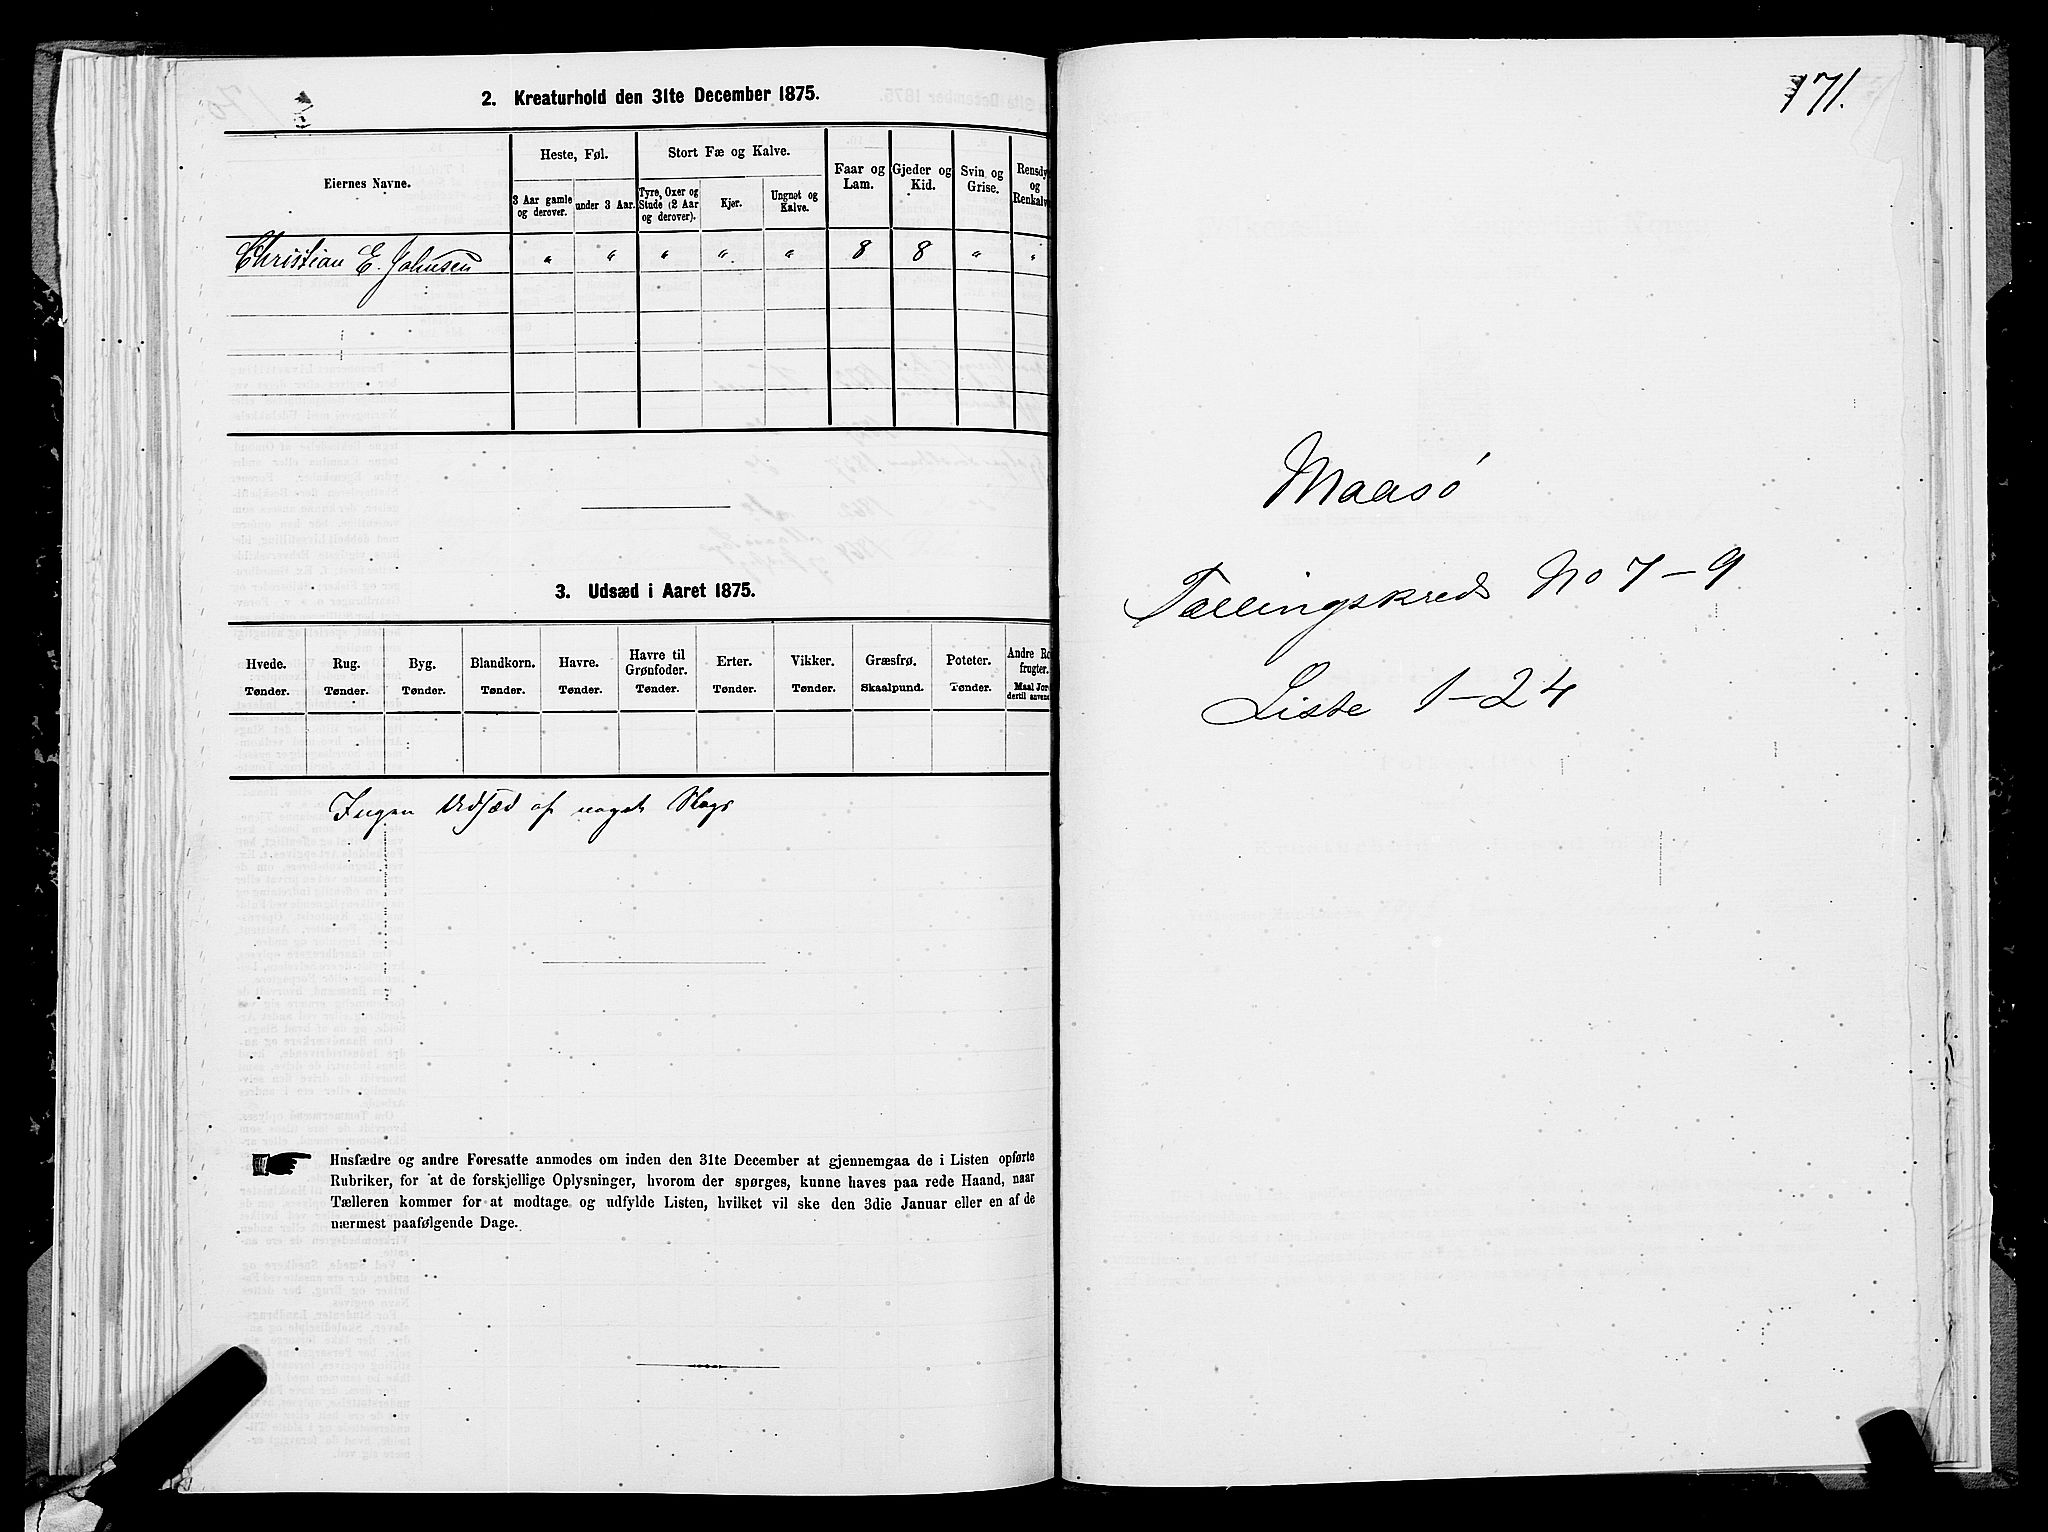 2. Kreaturhold den 31te December 1875.
Eiernes Navne.
Heste, Føl.
Stort Fæ og Kalve.
Faar og Lam.
Gjeder og Kid.
Svin og Grise.
Rensdy og Renkalv
3 Aar gamle og derover.
under 3 Aar.
Tyre, Oxer og Stude (2 Aar og derover).
Kjør.
Ungnøt og Kalve.
Christian E. Johnsen " " " " " 8 8 " "
3. Udsæd i Aaret 1875.
Hvede. Rug. Byg. Blandkorn. Havre. Havre til Grønfoder. Erter. Vikker. Græsfrø. Poteter. Andre Ro frugter.
Tønder. Tønder. Tønder. Tønder. Tønder. Tønder. Tønder. Tønder. Skaalpund. Tønder. Maal Jor dertil anvend
Ingen Udsæd af noget Slags
Husfædre og andre Foresatte anmodes om inden den 31te December at gjennemgaa de i Listen opførte
Rubriker, for at de forskjellige Oplysninger, hvorom der spørges, kunne haves paa rede Haand, naar
Tælleren kommer for at modtage og udfylde Listen, hvilket vil ske den 3die Januar eller en af de
nærmest paafølgende Dage.
171.
Maasó
Tællingskreds No 7-9
Liste 1-24